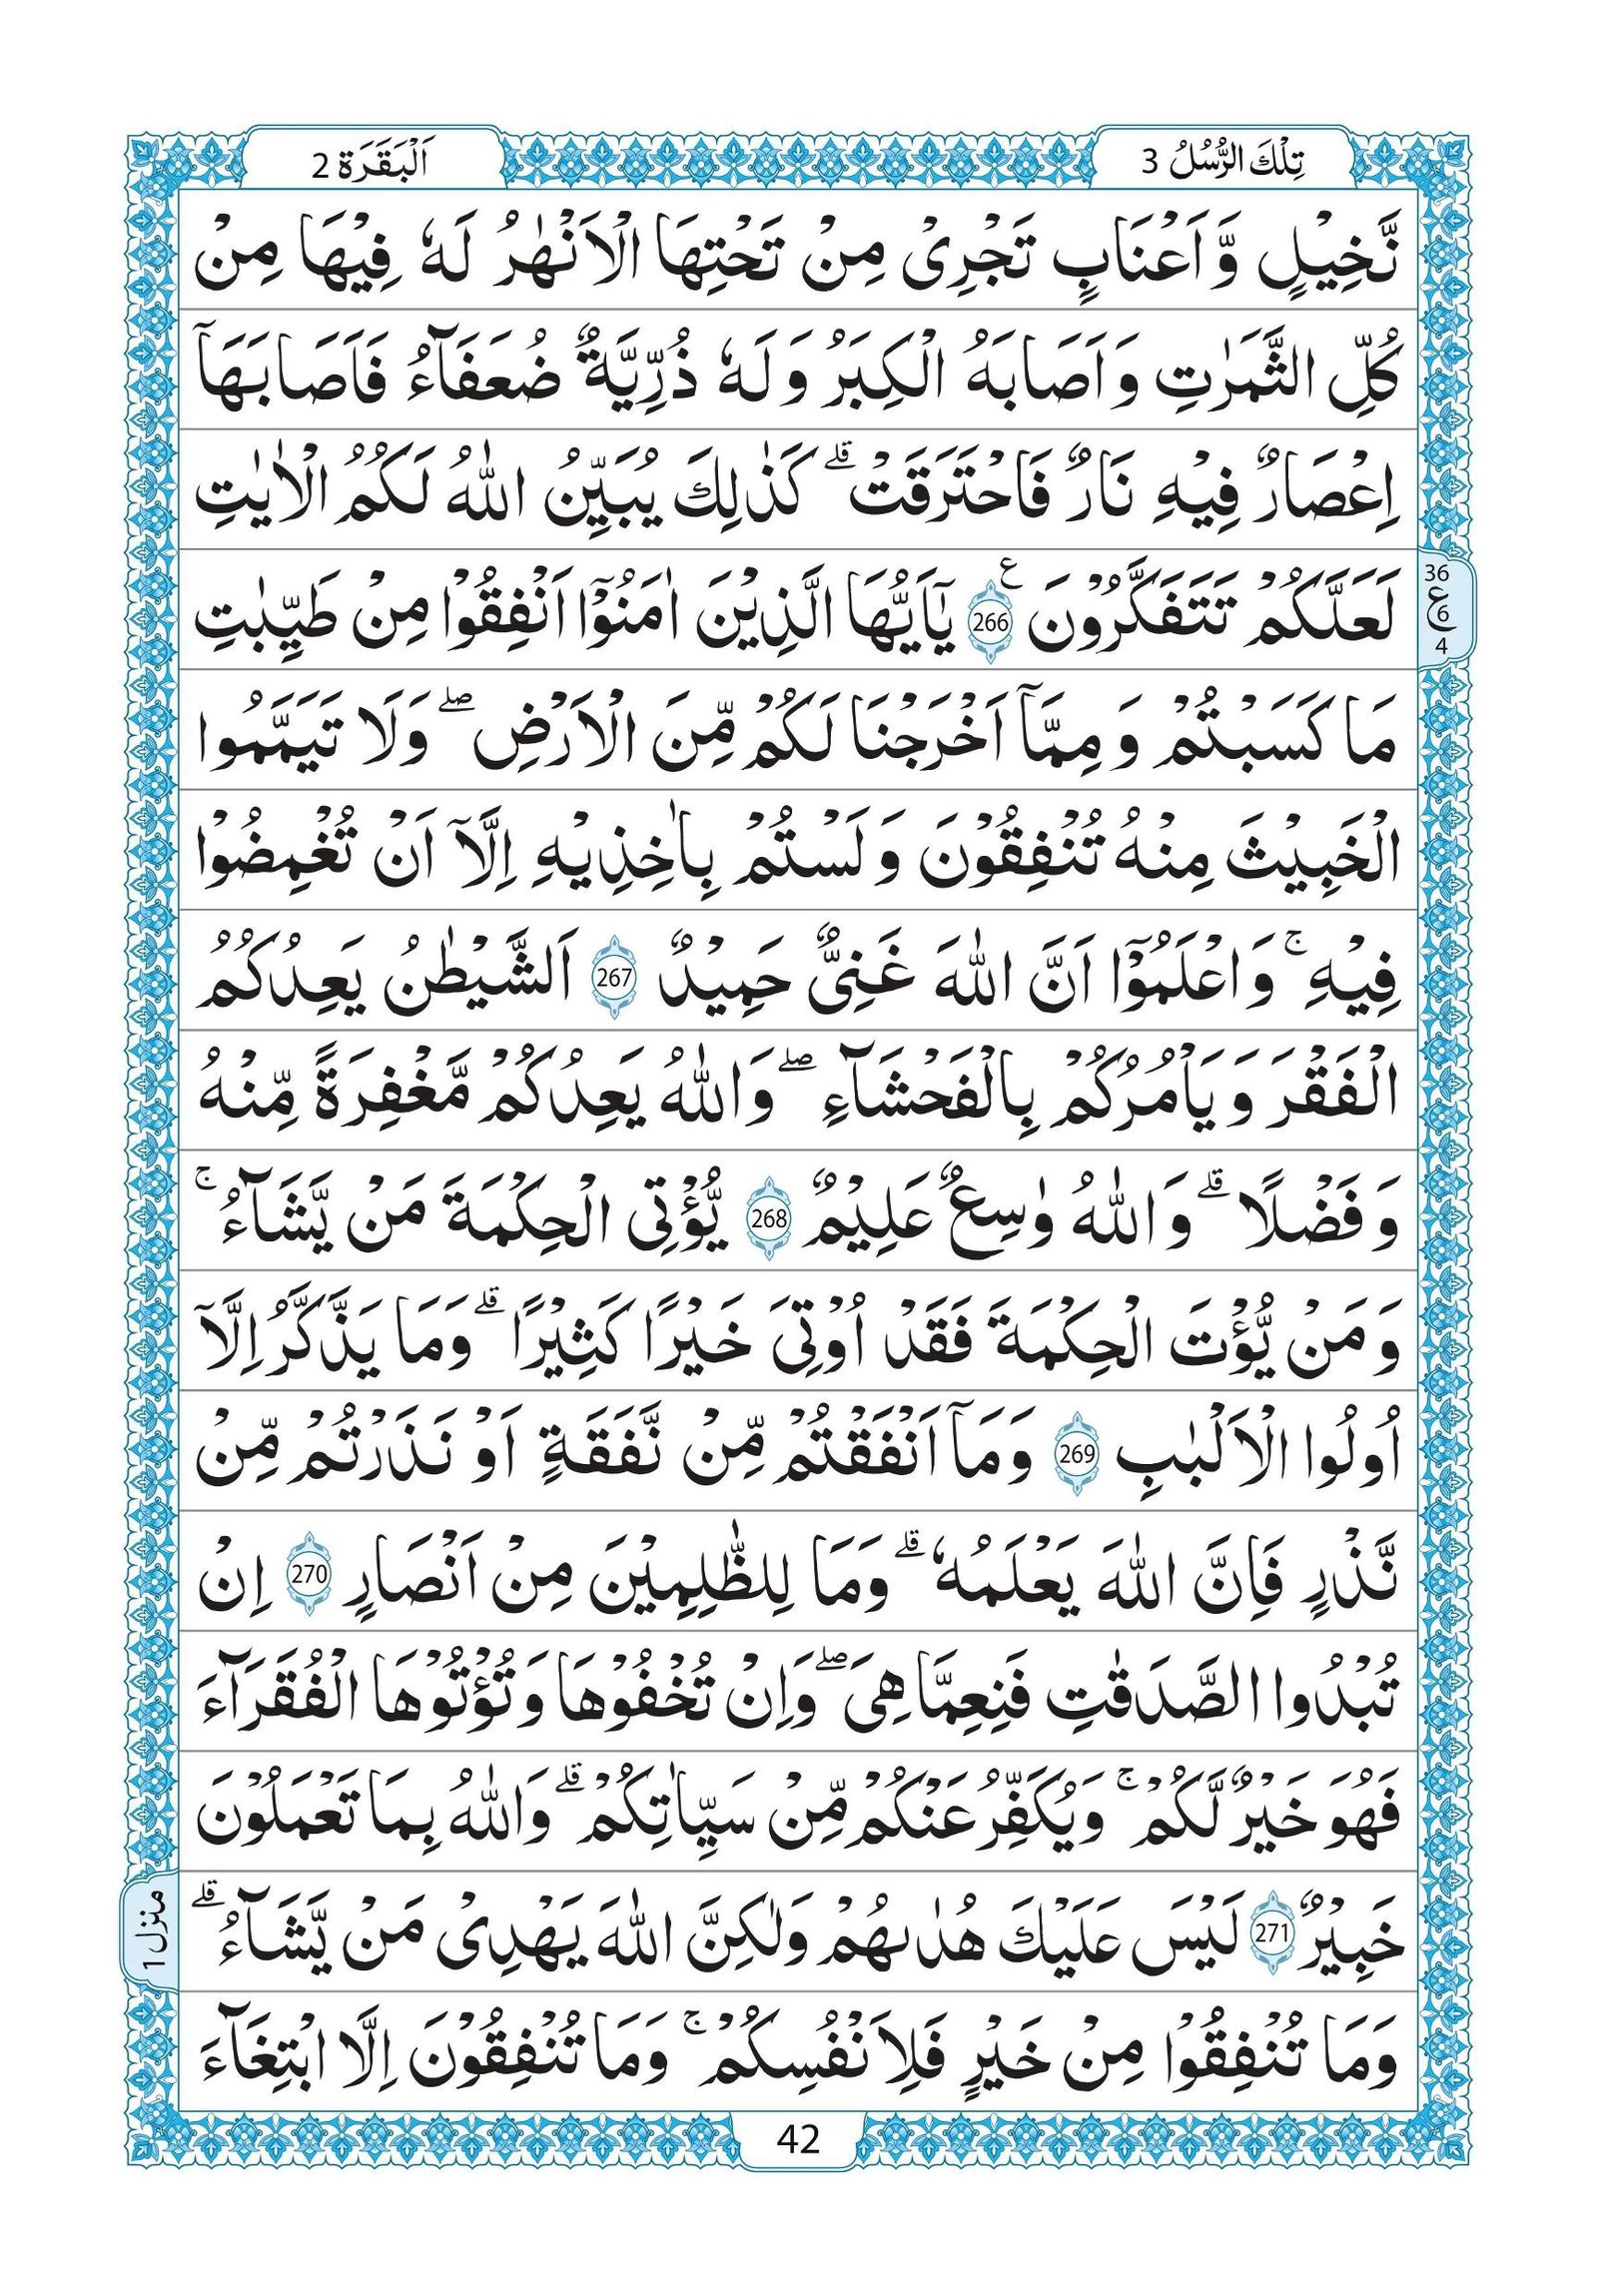 تِلْكَ الرُّسُلُ 3
اَلْبَقَرَة 2
نَّخِيْلٍ وَّ اَعْنَابٍ تَجْرِىْ مِنْ تَحْتِهَا الْاَنْهٰرُ لَهٗ فِيْهَا مِنْ
كُلِّ الثَّمَرٰتِ وَ اَصَابَهُ الْكِبَرُ وَ لَهٗ ذُرِّيَّةٌ ضُعَفَآءُ فَاَصَابَهَاۤ
اِعْصَارٌ فِيْهِ نَارٌ فَاحْتَرَقَتْ ۗ كَذٰلِكَ يُبَيِّنُ اللّٰهُ لَكُمُ الْاٰيٰتِ
لَعَلَّكُمْ تَتَفَكَّرُوْنَ ع 266 يٰۤاَيُّهَا الَّذِيْنَ اٰمَنُوْۤا اَنْفِقُوْا مِنْ طَيِّبٰتِ
36
ع 6
4
مَا كَسَبْتُمْ وَ مِمَّاۤ اَخْرَجْنَا لَكُمْ مِّنَ الْاَرْضِ ۖ وَلَا تَيَمَّمُوا
الْخَبِيْثَ مِنْهُ تُنْفِقُوْنَ وَ لَسْتُمْ بِاٰخِذِيْهِ اِلَّاۤ اَنْ تُغْمِضُوْا
فِيْهِ ۚ وَ اعْلَمُوْۤا اَنَّ اللّٰهَ غَنِىٌّ حَمِيْدٌ 267 اَلشَّيْطٰنُ يَعِدُكُمُ
الْفَقْرَ وَ يَاْمُرُكُمْ بِالْفَحْشَآءِ ۖ وَاللّٰهُ يَعِدُكُمْ مَّغْفِرَةً مِّنْهُ
وَ فَضْلًا ۗ وَ اللّٰهُ وٰسِعٌ عَلِيْمٌ 268 يُّؤْتِى الْحِكْمَةَ مَنْ يَّشَآءُ ۚ
وَ مَنْ يُّؤْتَ الْحِكْمَةَ فَقَدْ اُوْتِىَ خَيْرًا كَثِيْرًا ۗ وَمَا يَذَّكَّرُ اِلَّاۤ
اُولُوا الْاَلْبٰبِ 269 وَمَاۤ اَنْفَقْتُمْ مِّنْ نَّفَقَةٍ اَوْ نَذَرْتُمْ مِّنْ
نَّذْرٍ فَاِنَّ اللّٰهَ يَعْلَمُهٗ ۗ وَمَا لِلظّٰلِمِيْنَ مِنْ اَنْصَارٍ 270 اِنْ
تُبْدُوا الصَّدَقٰتِ فَنِعِمَّا هِىَ ۖ وَاِنْ تُخْفُوْهَا وَ تُؤْتُوْهَا الْفُقَرَآءَ
فَهُوَ خَيْرٌ لَّكُمْ ۚ وَيُكَفِّرُ عَنْكُمْ مِّنْ سَيِّاٰتِكُمْ ۗ وَاللّٰهُ بِمَا تَعْمَلُوْنَ
خَبِيْرٌ 271 لَيْسَ عَلَيْكَ هُدٰىهُمْ وَلٰكِنَّ اللّٰهَ يَهْدِىْ مَنْ يَّشَآءُ ۗ
منزل 1
وَمَا تُنْفِقُوْا مِنْ خَيْرٍ فَلِاَنْفُسِكُمْ ۚ وَمَا تُنْفِقُوْنَ اِلَّا ابْتِغَآءَ
42